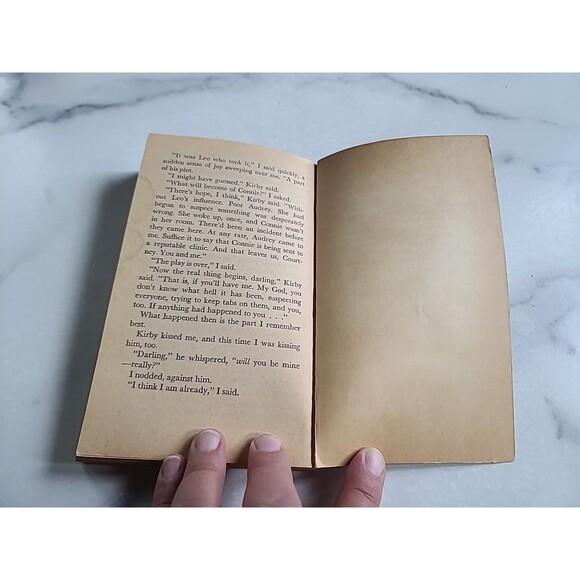 "It was Leo who took it," I said quickly, a
sudden sense of joy sweeping over me. "A part
of his plot.
"I might have guessed," Kirby said.
"What will become of Connie?" I asked.
"There's hope, I think," Kirby said. "With-
out Leo's influence. Poor Audrey. She had
begun to suspect something was desperately
wrong. She woke up, once, and Connie wasn't
in her room. There'd been an incident before
they came here. At any rate, Audrey came to
me. Suffice it to say that Connie is being sent to
a reputable clinic. And that leaves us, Court-
ney. You and me."
"The play is over," I said.
"Now the real thing begins, darling," Kirby
said. "That is, if you'll have me. My God, you
don't know what hell it has been, suspecting
everyone, trying to keep tabs on them, and you,
too. If anything had happened to you . . ."
What happened then is the part I remember
best.
Kirby kissed me, and this time I was kissing
him, too.
"Darling," he whispered, "will you be mine
—really?"
I nodded, against him.
"I think I am already," I said.